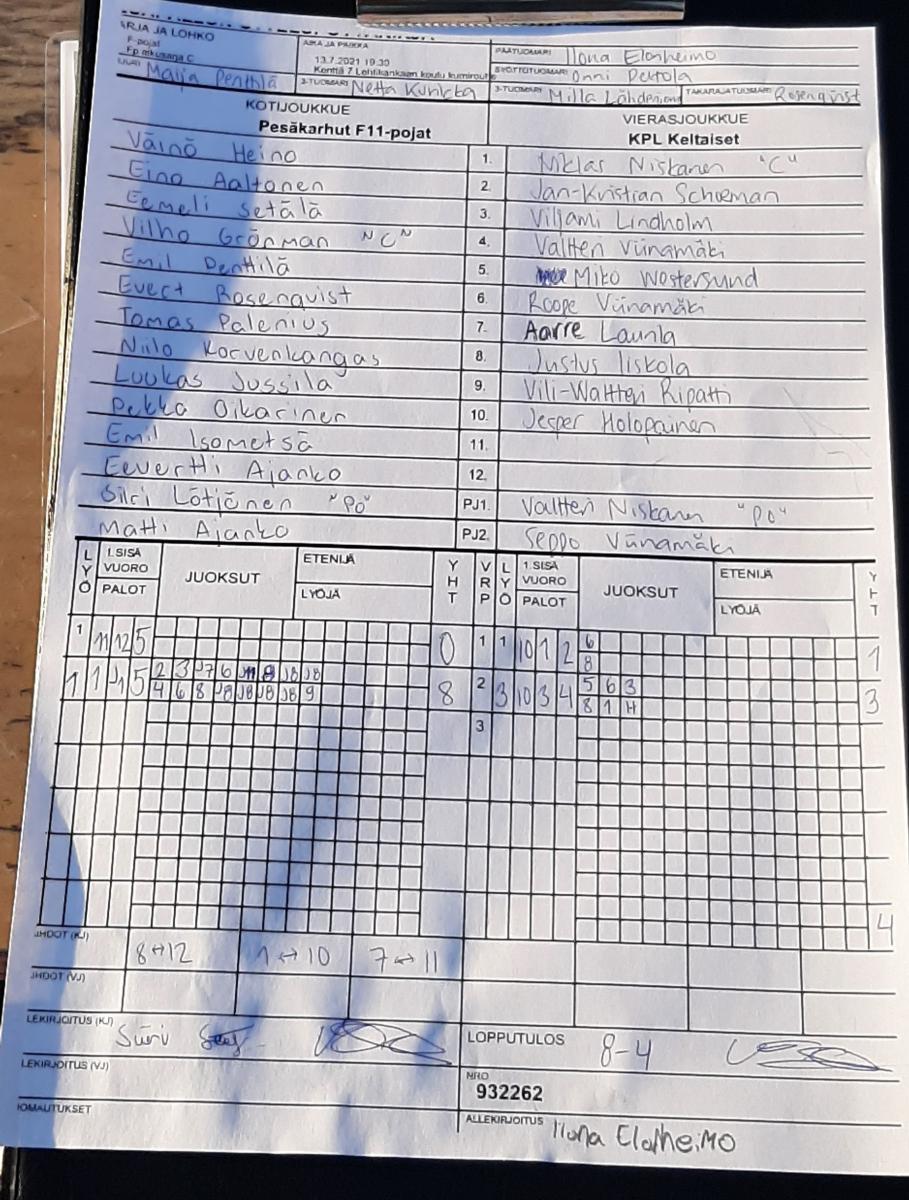 ARJA JA LOHKO
F-pojat
AIKA JA PAIKKA
13.7.2021 19.30
Kenttä 7
PÄÄTUOMARI Ilona Elonheimo
SYÖTTÖTUOMARI Onni Peltola
Maija Penthlä 2-TUOMARI Netta 3-TUOMARI Milla TAKARAJATUOMARI Rosenqvist
KOTIJOUKKUE VIERASJOUKKUE
Pesäkarhut F11-pojat KPL Keltaiset
Väinö Heino 1. Niklas Niskanen "C"
Eino Aaltonen 2. Jan-Kristian Schoeman
Eemeli Setälä 3. Viljami Lindholm
Vilho Grönman "C" 4. Valtteri Viinamäki
Emil Penttilä 5. Miko Wastersund
Evert Rosenqvist 6. Roope Viinamäki
Tomas Palenius 7. Aarre Launla
Niilo Korvenkangas 8. Justus Iiskola
Luukas Jussila 9. Vili-Waltteri Ripatti
Pekka Oikarinen 10. Jesper Holopainen
Emil Isometsä 11.
Eevertti Ajanko 12.
Siiri Lötjönen "PO" PJ1. Valtteri Niskanen "PO"
Matti Ajanko PJ2. Seppo Viinamäki
LYÖ 1.SISÄ VUORO PALOT JUOKSUT ETENIJÄ LYÖJÄ YHT VRP LYÖ 1.SISÄ VUORO PALOT JUOKSUT ETENIJÄ LYÖJÄ YHT
1 11 12 5 0 1 1 10 1 2 6 1
8
1 1 J1 5 2 3 J7 6 8 J8 J8 8 2 3 10 3 4 5 6 3 3
4 6 8 J8 J8 J8 J8 9 8 1 H
3
4
JHDOT (KJ) 8↔12 1↔10 7↔11
JHDOT (VJ)
LEKIRJOITUS (KJ) Siiri LOPPUTULOS 8-4
LEKIRJOITUS (VJ) NRO
932262
IOMAUTUKSET ALLEKIRJOITUS Ilona Elonheimo